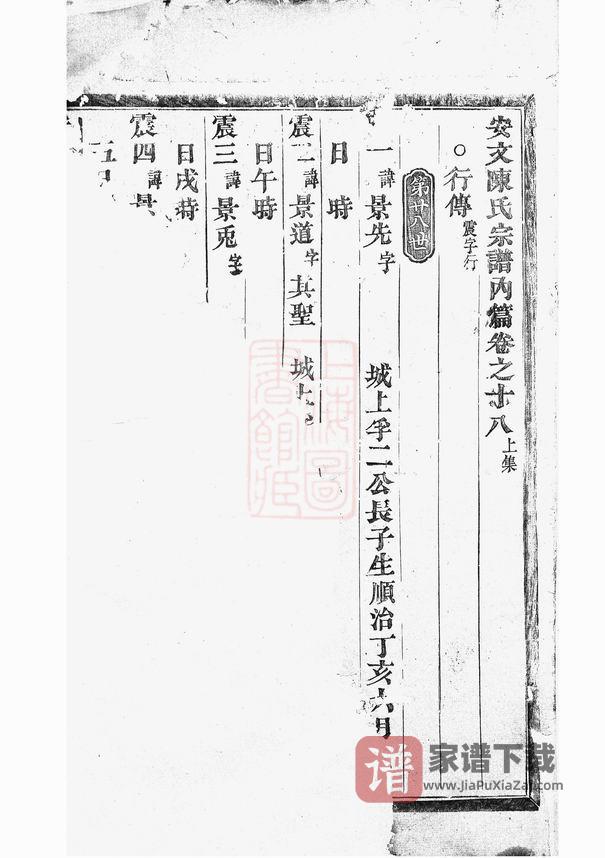 安文陳氏宗譜內篇卷之十八上集
○行傳震字行
第廿八世
一諱景先字 城上孚二公長子生順治丁亥六月
日 時
震二諱景道字其聖 城上
日午時
震三諱景兎字
日戌時
震四諱景
上海圖書館藏
谱 家谱下载
www.JiaPuXiaZai.com